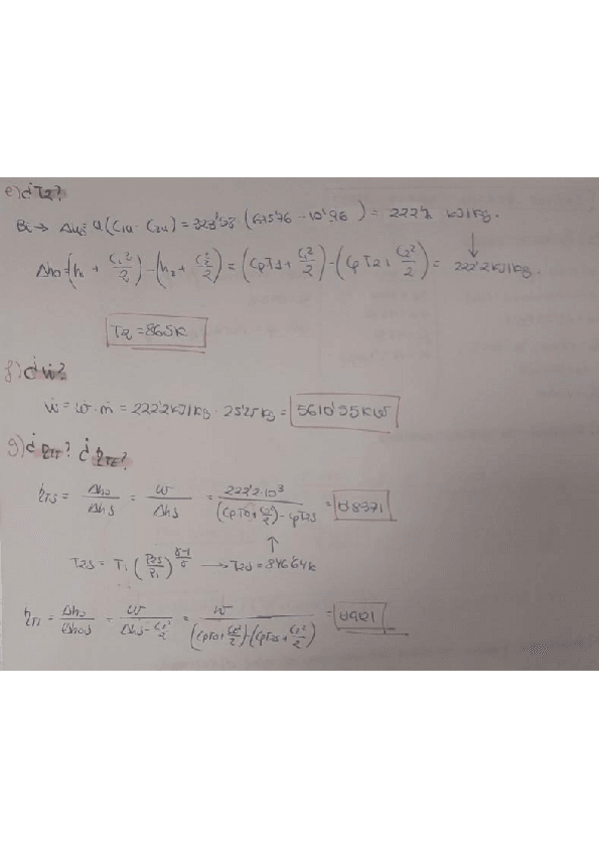 e) ¿T2?
Bi → Δh0 = U(C1u - C2u) = 328'98 · (675'76 - 10'96) = 222'2 kJ/kg.
Δh0 = (h1 + C1²/2) - (h2 + C2²/2) = (CpT1 + C1²/2) - (CpT2 + C2²/2) = 222'2 kJ/kg.
T2 = 865K
f) ¿Ẇ?
Ẇ = W · ṁ = 222'2 kJ/kg · 25'25 kg = 5610'55 KW
g) ¿ηTT? ¿ηTE?
ηTS = Δh0/Δhs = W/Δhs = 222'2·10³/((CpT01 + C1²/2) - CpT2s) = 0'8371
T2s = T1 (P2s/P1)^(γ-1/γ) → T2s = 846'64K
ηTT = Δh0/Δh0s = W/(Δhs - C2²/2) = W/((CpT01 + C1²/2) - (CpT2s + C2²/2)) = 0'921